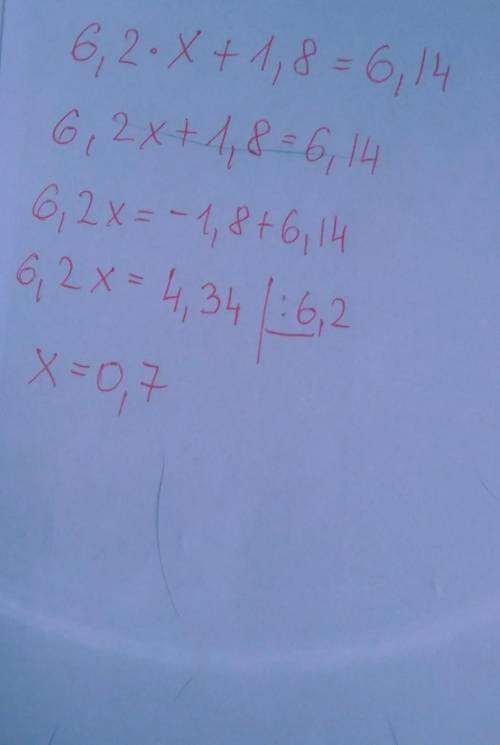 6,2·x+1,8=6,14
6,2x+1,8=6,14
6,2x=-1,8+6,14
6,2x=4,34 |:6,2
x=0,7